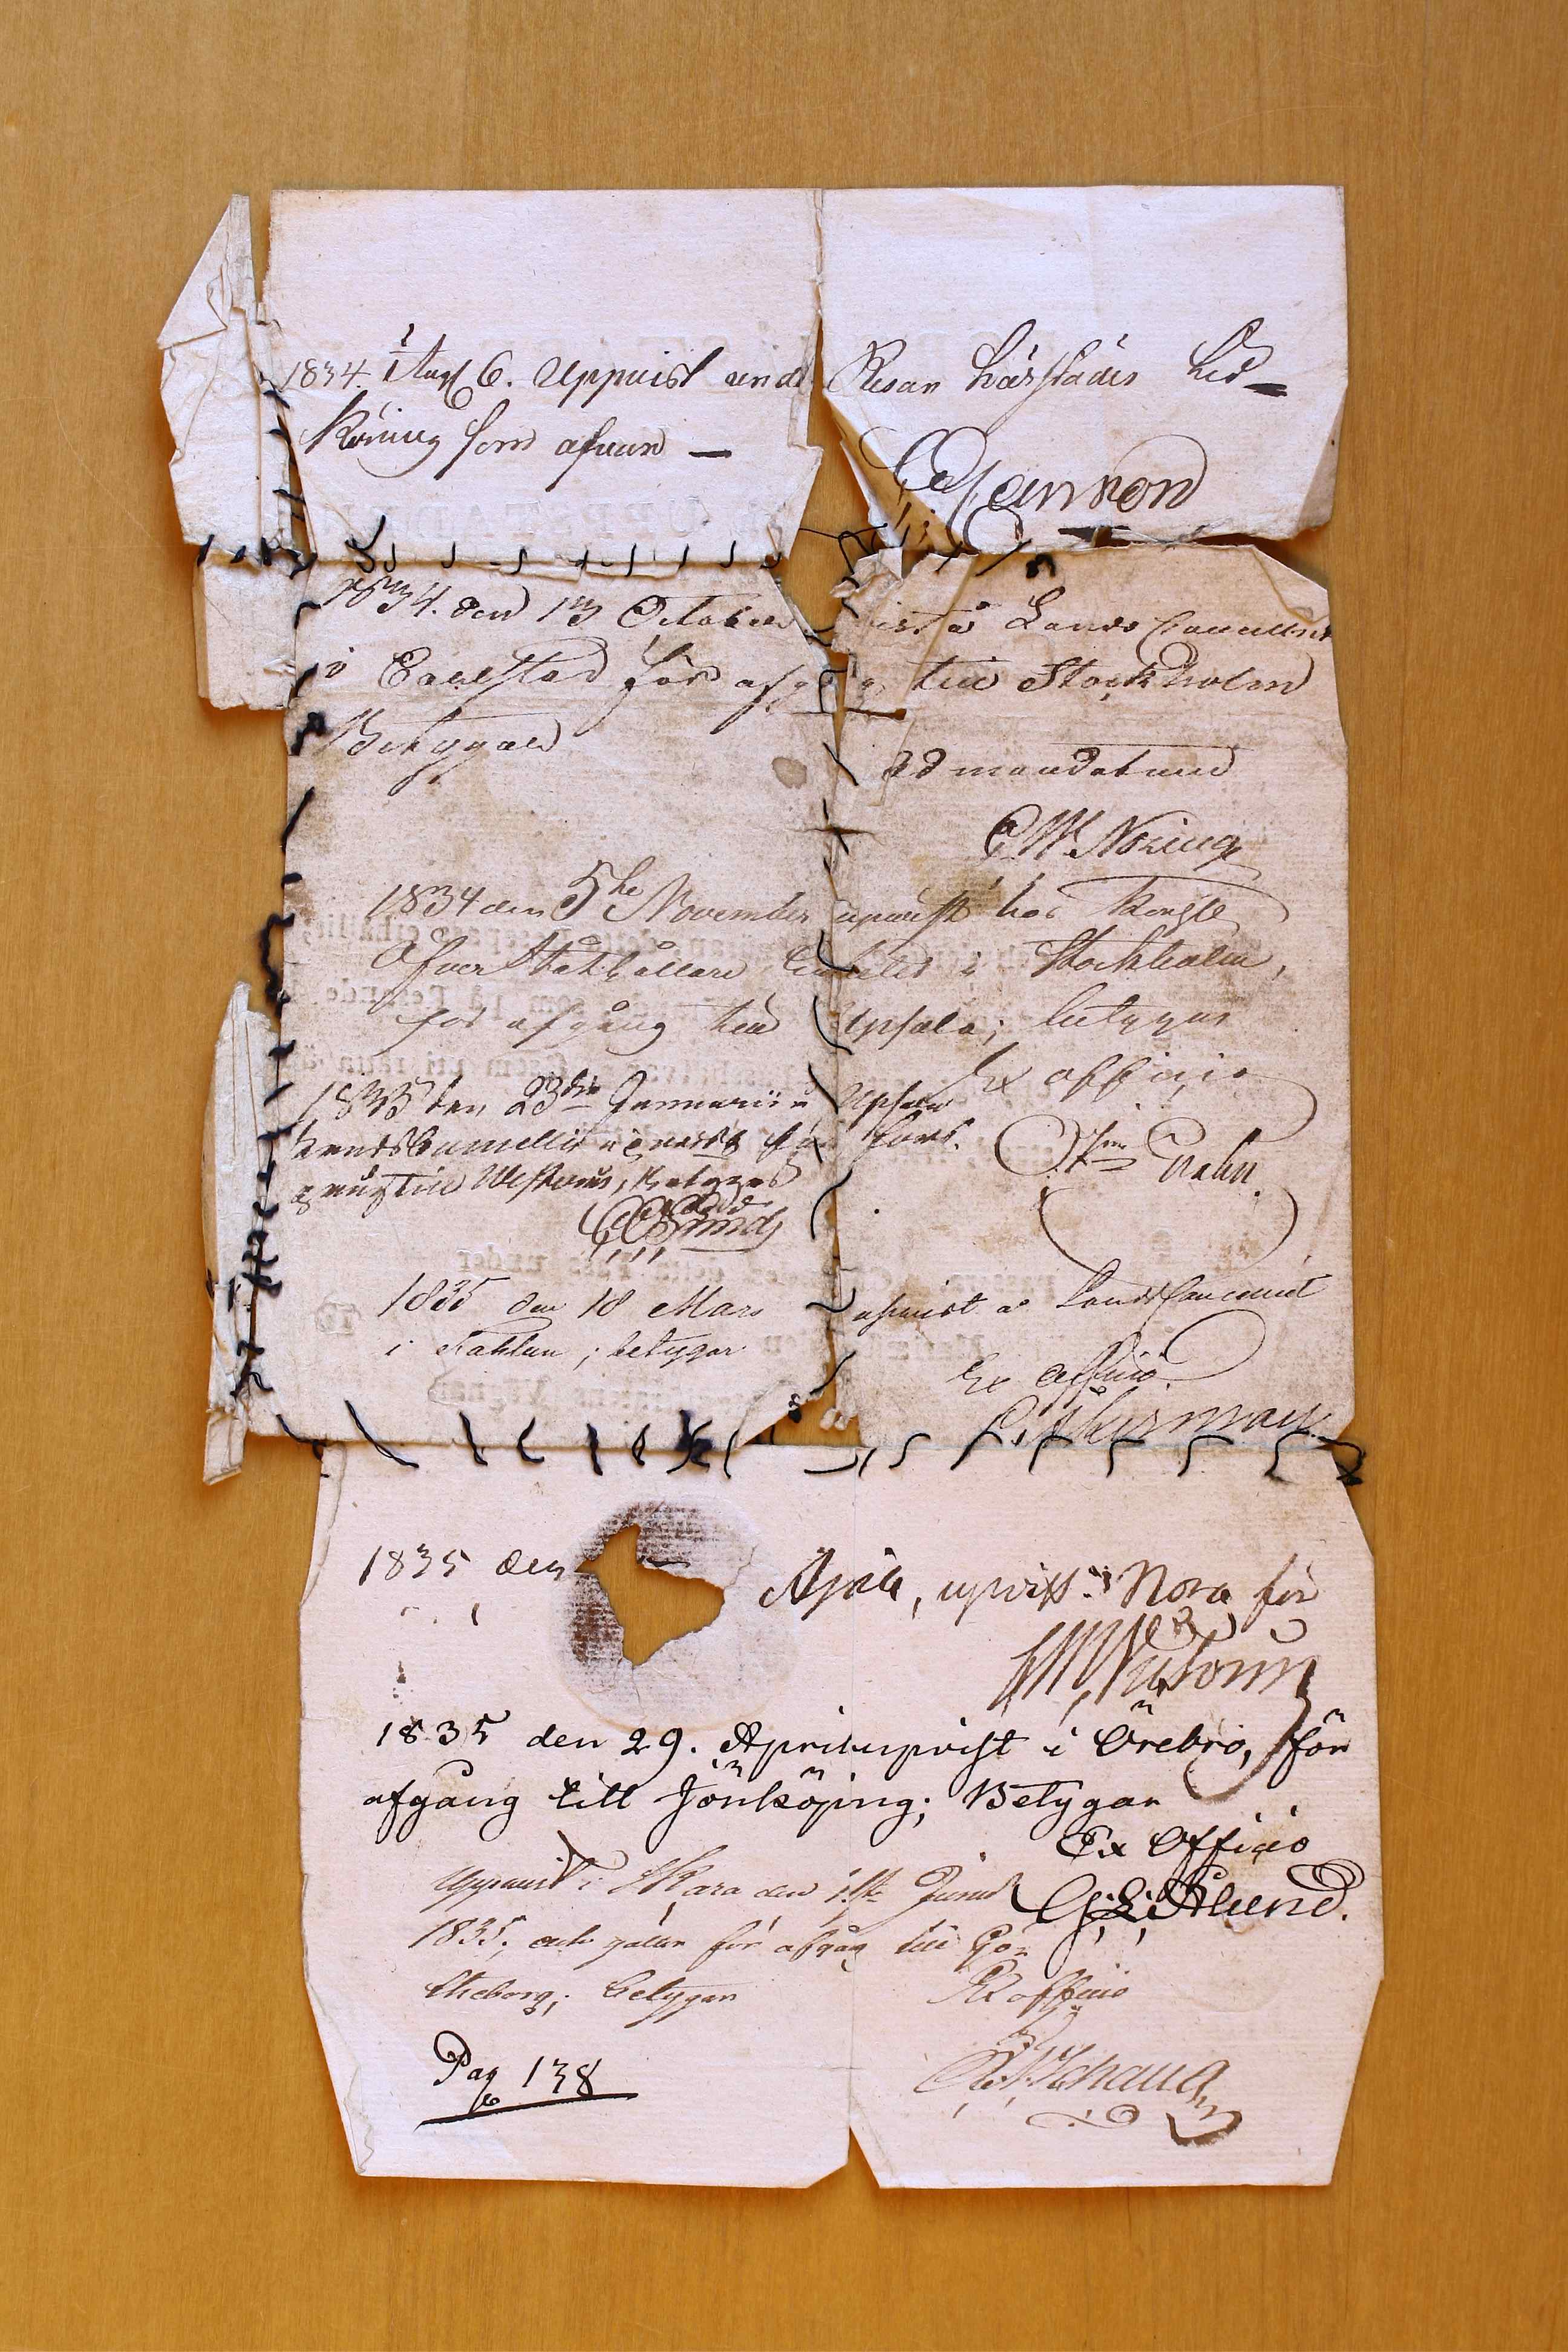 1834. Aug 6. Uppvist und Resan härstädes Lid-
köning som ofvan —
1834. den 13 October vist å Lands Cancelliet
i Carlstad för afgång till Stockholm
Betygar
ad mandatum
C. W. Noring
1834 den 5te November upvist hos Kongl
Öfver Ståthållare Embetet i Stockholm,
för afgång till Upsala; betygar
Ex officio
1835 den 23die Januarii å Upsala
Landscancelliet upvist för fort-
gång till Westerås, betygar
1835 den 18 Mars upvist å Landscancelliet
i Fahlun; betygar
Ex officio
C. Åkerman
1835 den April, upvist i Nora för
1835 den 29. April upvist i Örebro, för
afgång till Jönköping; Betygar
Ex Officio
Uppvist i Skara den 1ste Junii
1835, och gäller för afgång till Gö-
theborg; betygar
Ex officio
Pag 138